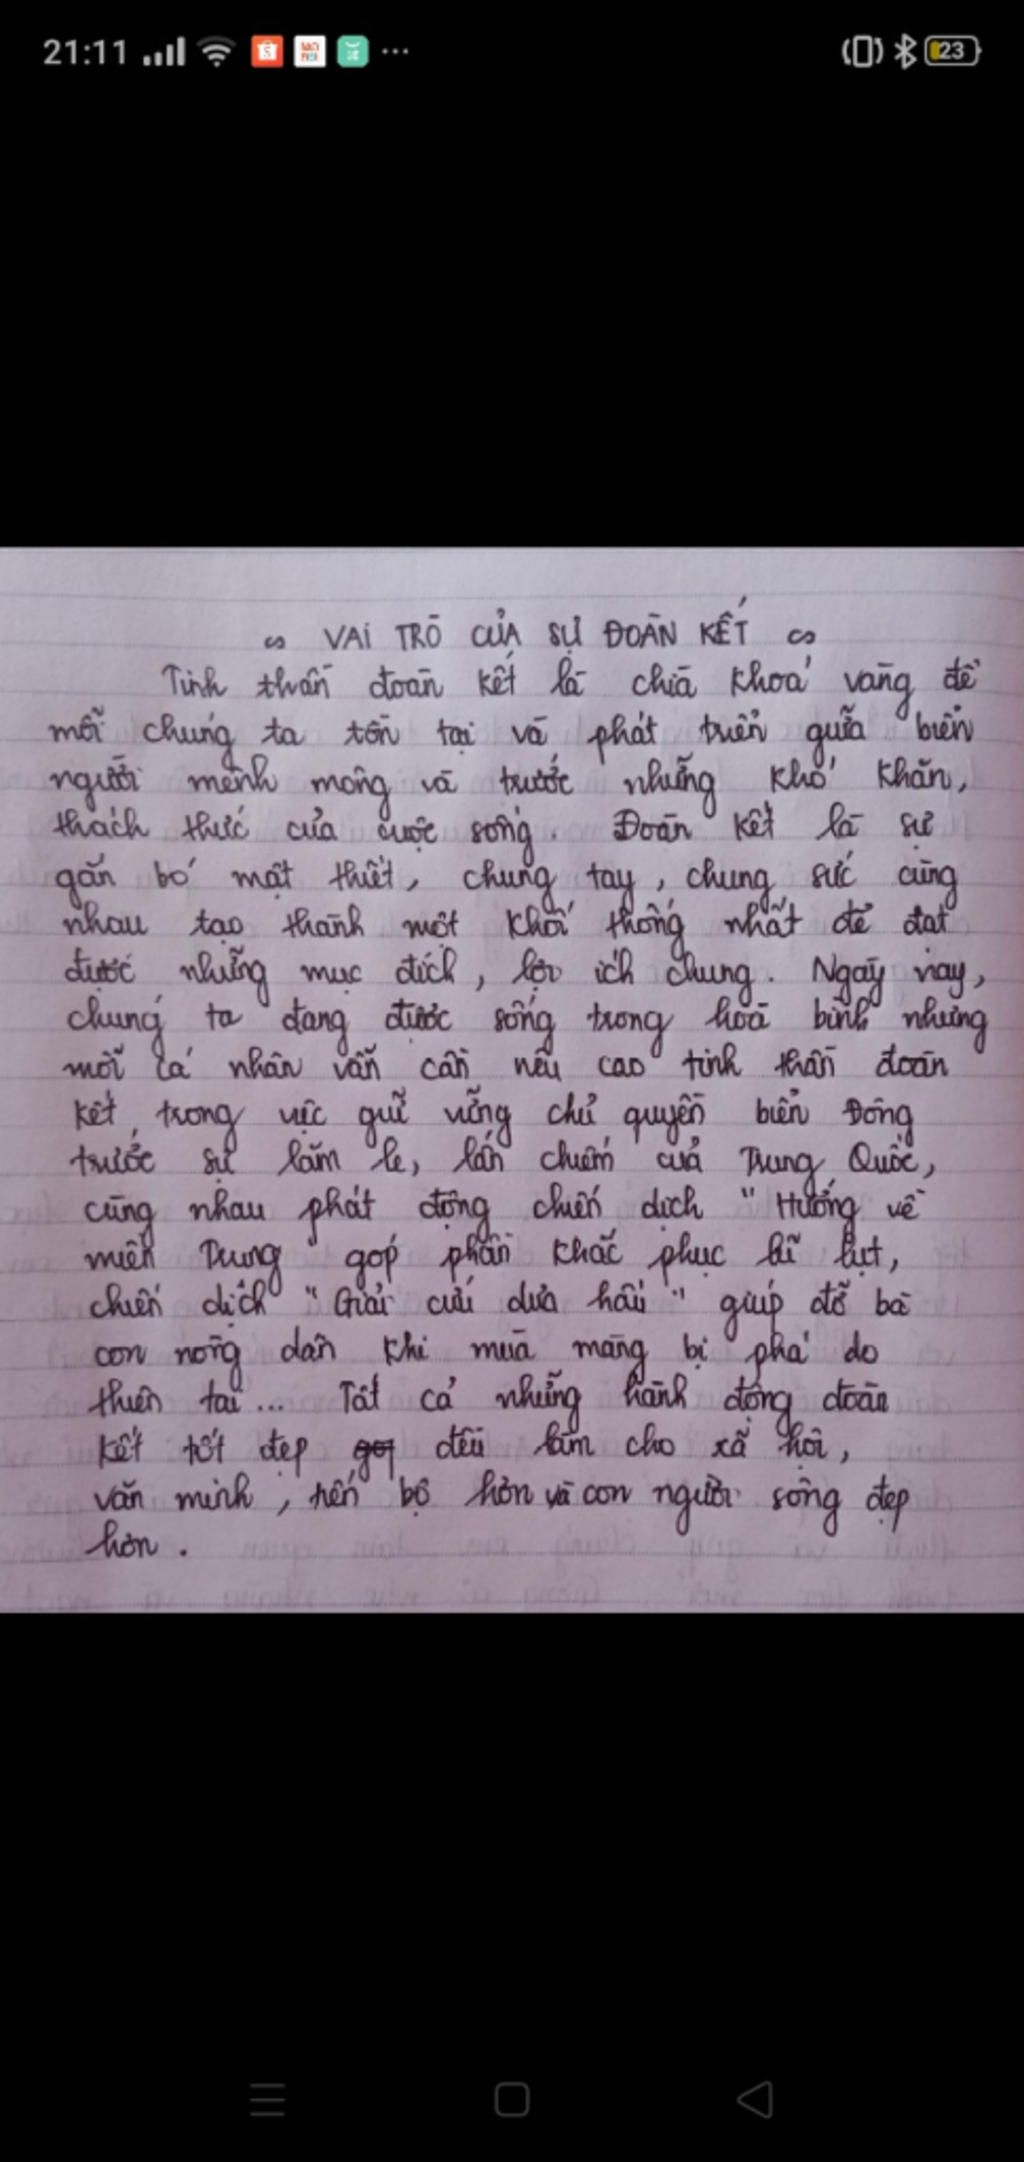 21:11
23
VAI TRÒ CỦA SỰ ĐOÀN KẾT
Tinh thần đoàn kết là chìa khoá vàng để
mỗi chúng ta tồn tại và phát triển giữa biển
người mênh mông và trước những khó khăn,
thách thức của cuộc sống. Đoàn kết là sự
gắn bó mật thiết, chung tay, chung sức cùng
nhau tạo thành một khối thống nhất để đạt
được những mục đích, lợi ích chung. Ngày nay,
chúng ta đang được sống trong hoà bình nhưng
mỗi cá nhân vẫn cần nêu cao tinh thần đoàn
kết, trong việc giữ vững chủ quyền biển Đông
trước sự lăm le, lấn chiếm của Trung Quốc,
cùng nhau phát động chiến dịch "Hướng về
miền Trung" góp phần khắc phục lũ lụt,
chiến dịch "Giải cứu dưa hấu" giúp đỡ bà
con nông dân khi mùa màng bị phá do
thiên tai... Tất cả những hành động đoàn
kết tốt đẹp đều làm cho xã hội,
văn minh, tiến bộ hơn và con người sống đẹp
hơn.